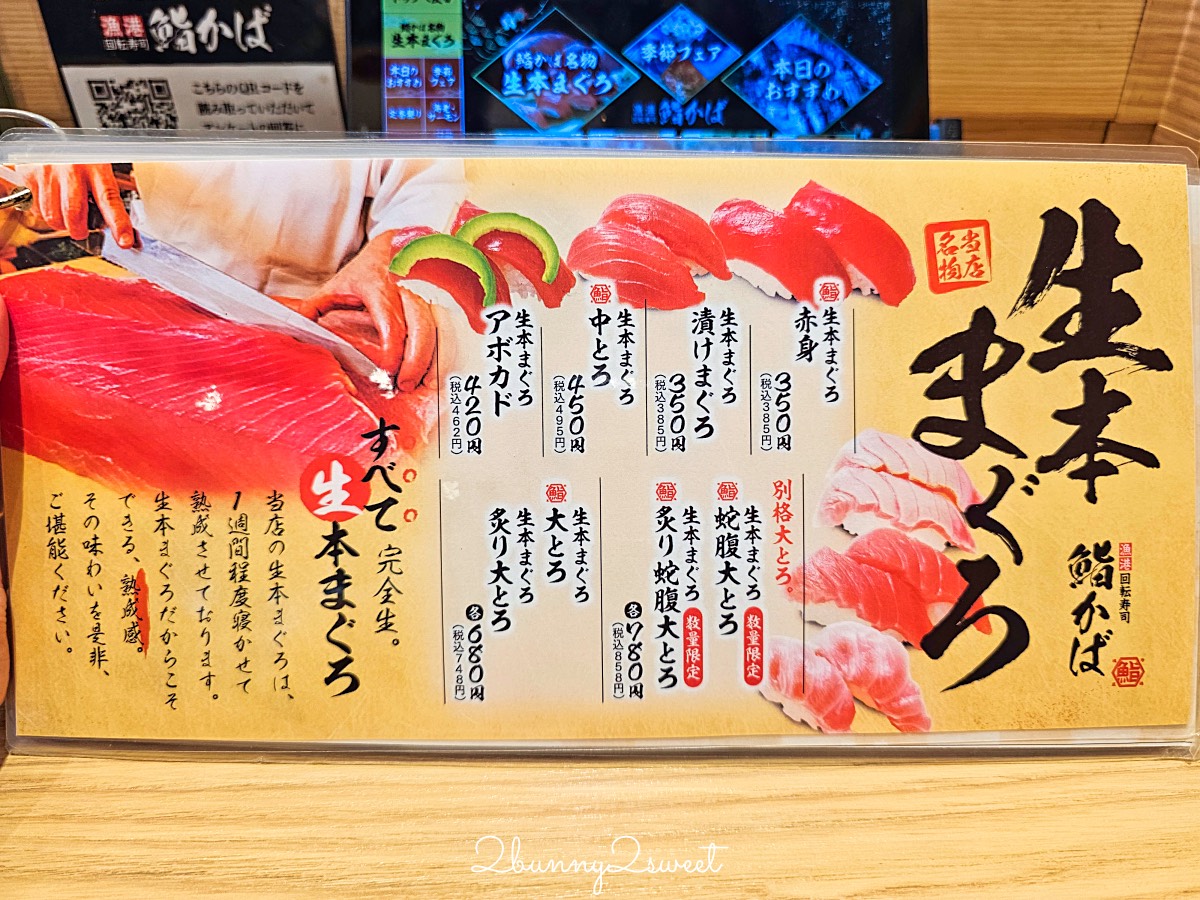 漁港
回転寿司
鮨かば
こちらのQRコードを
読み取っていただいて
鮨かば名物
生本まぐろ
本日の
おすすめ
季節
フェア
鮨かば名物
生本まぐろ
季節フェア
本日の
おすすめ
漁港
回転寿司
鮨かば
当店
名物
生本
まぐろ
漁港
回転寿司
鮨かば
鮨
鮨
生本まぐろ
赤身
350円
(税込385円)
生本まぐろ
漬けまぐろ
350円
(税込385円)
鮨
生本まぐろ
中とろ
450円
(税込495円)
生本まぐろ
アボカド
420円
(税込462円)
別格大とろ。
鮨
生本まぐろ
蛇腹大とろ
数量限定
鮨
生本まぐろ
炙り蛇腹大とろ
数量限定
各780円
(税込858円)
鮨
生本まぐろ
大とろ
生本まぐろ
炙り大とろ
各680円
(税込748円)
すべて完全生。
生本まぐろ
当店の生本まぐろは、
1週間程度寝かせて
熟成させております。
生本まぐろだからこそ
できる、熟成感。
その味わいを是非、
ご堪能ください。
2bunny2sweet